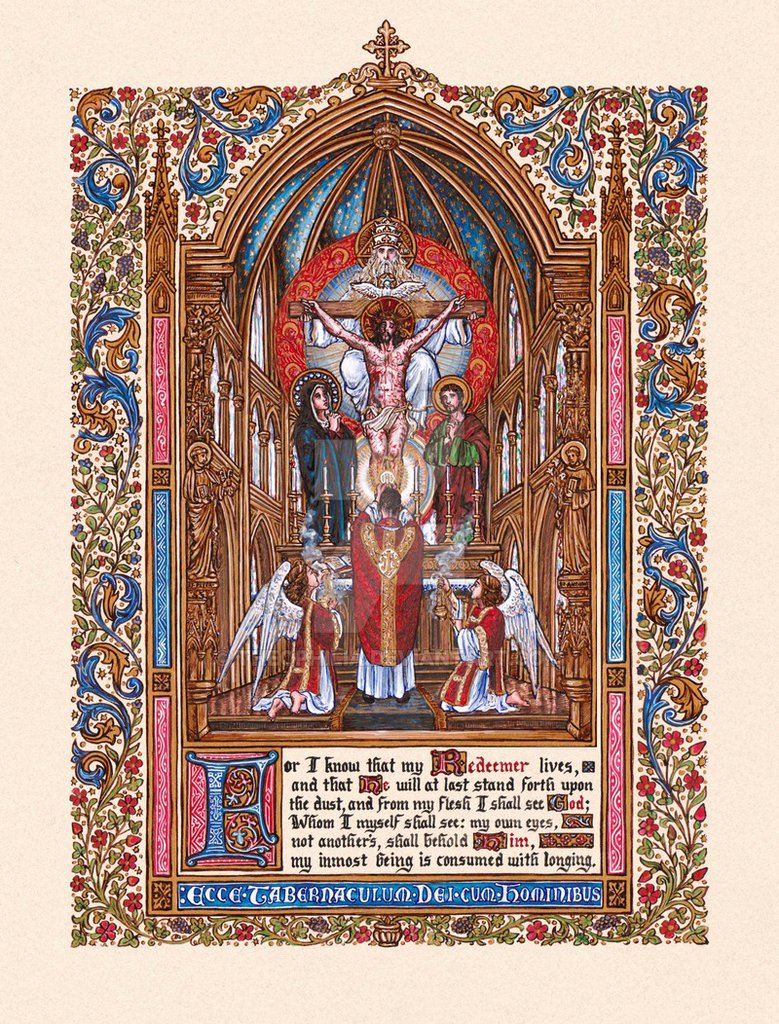 For I know that my Redeemer lives,
and that He will at last stand forth upon
the dust, and from my flesh I shall see God;
Whom I myself shall see: my own eyes,
not another's, shall behold Him,
my inmost being is consumed with longing.
:ECCE·TABERNACULUM·DEI·CUM·HOMINIBUS